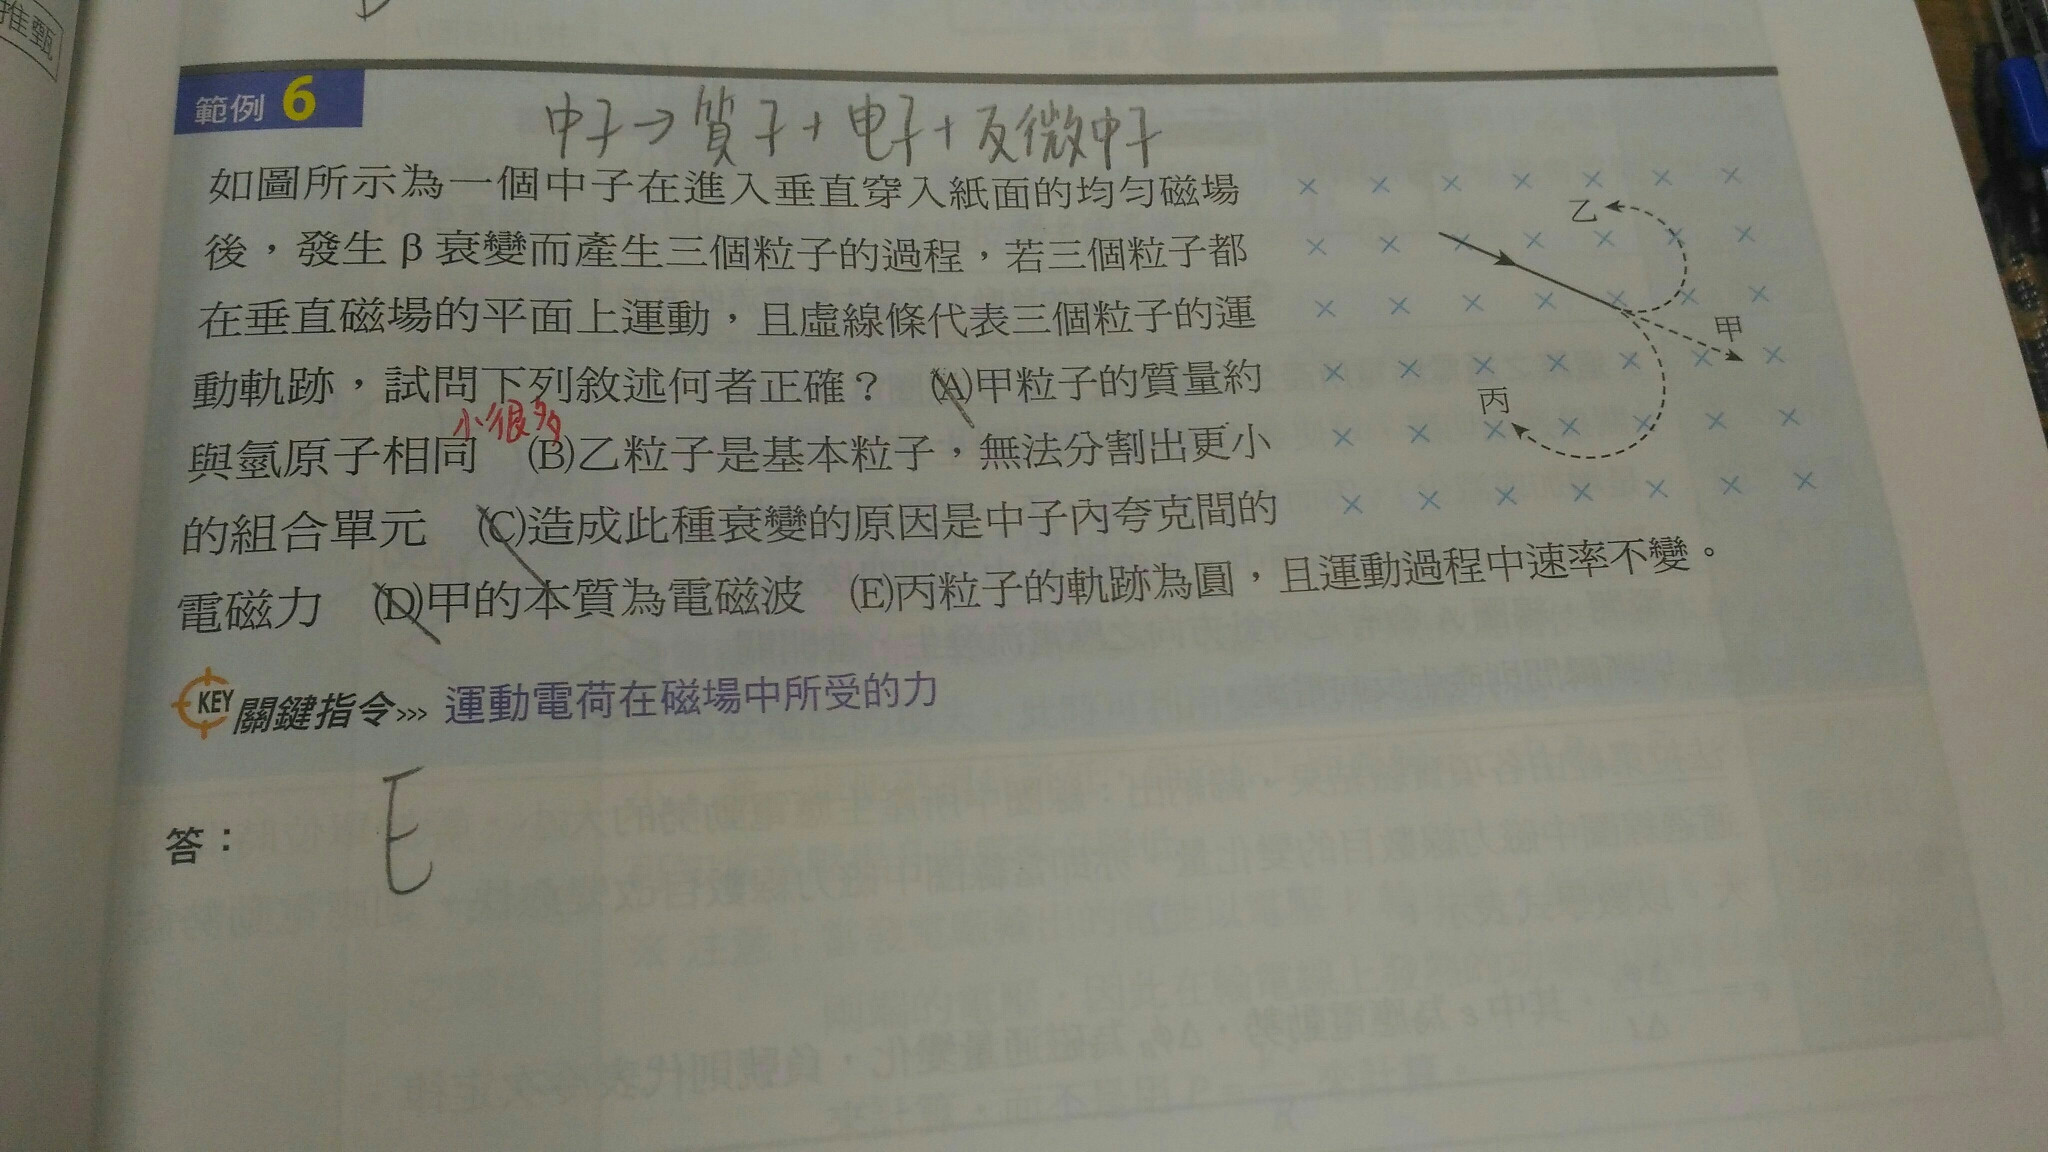 推甄
範例 6
中子→質子+电子+反微中子
如圖所示為一個中子在進入垂直穿入紙面的均勻磁場
後，發生β衰變而產生三個粒子的過程，若三個粒子都
在垂直磁場的平面上運動，且虛線條代表三個粒子的運
動軌跡，試問下列敘述何者正確？ (A)甲粒子的質量約
小很多
與氫原子相同 (B)乙粒子是基本粒子，無法分割出更小
的組合單元 (C)造成此種衰變的原因是中子內夸克間的
電磁力 (D)甲的本質為電磁波 (E)丙粒子的軌跡為圓，且運動過程中速率不變。
乙
甲
丙
KEY 關鍵指令>>> 運動電荷在磁場中所受的力
答： E